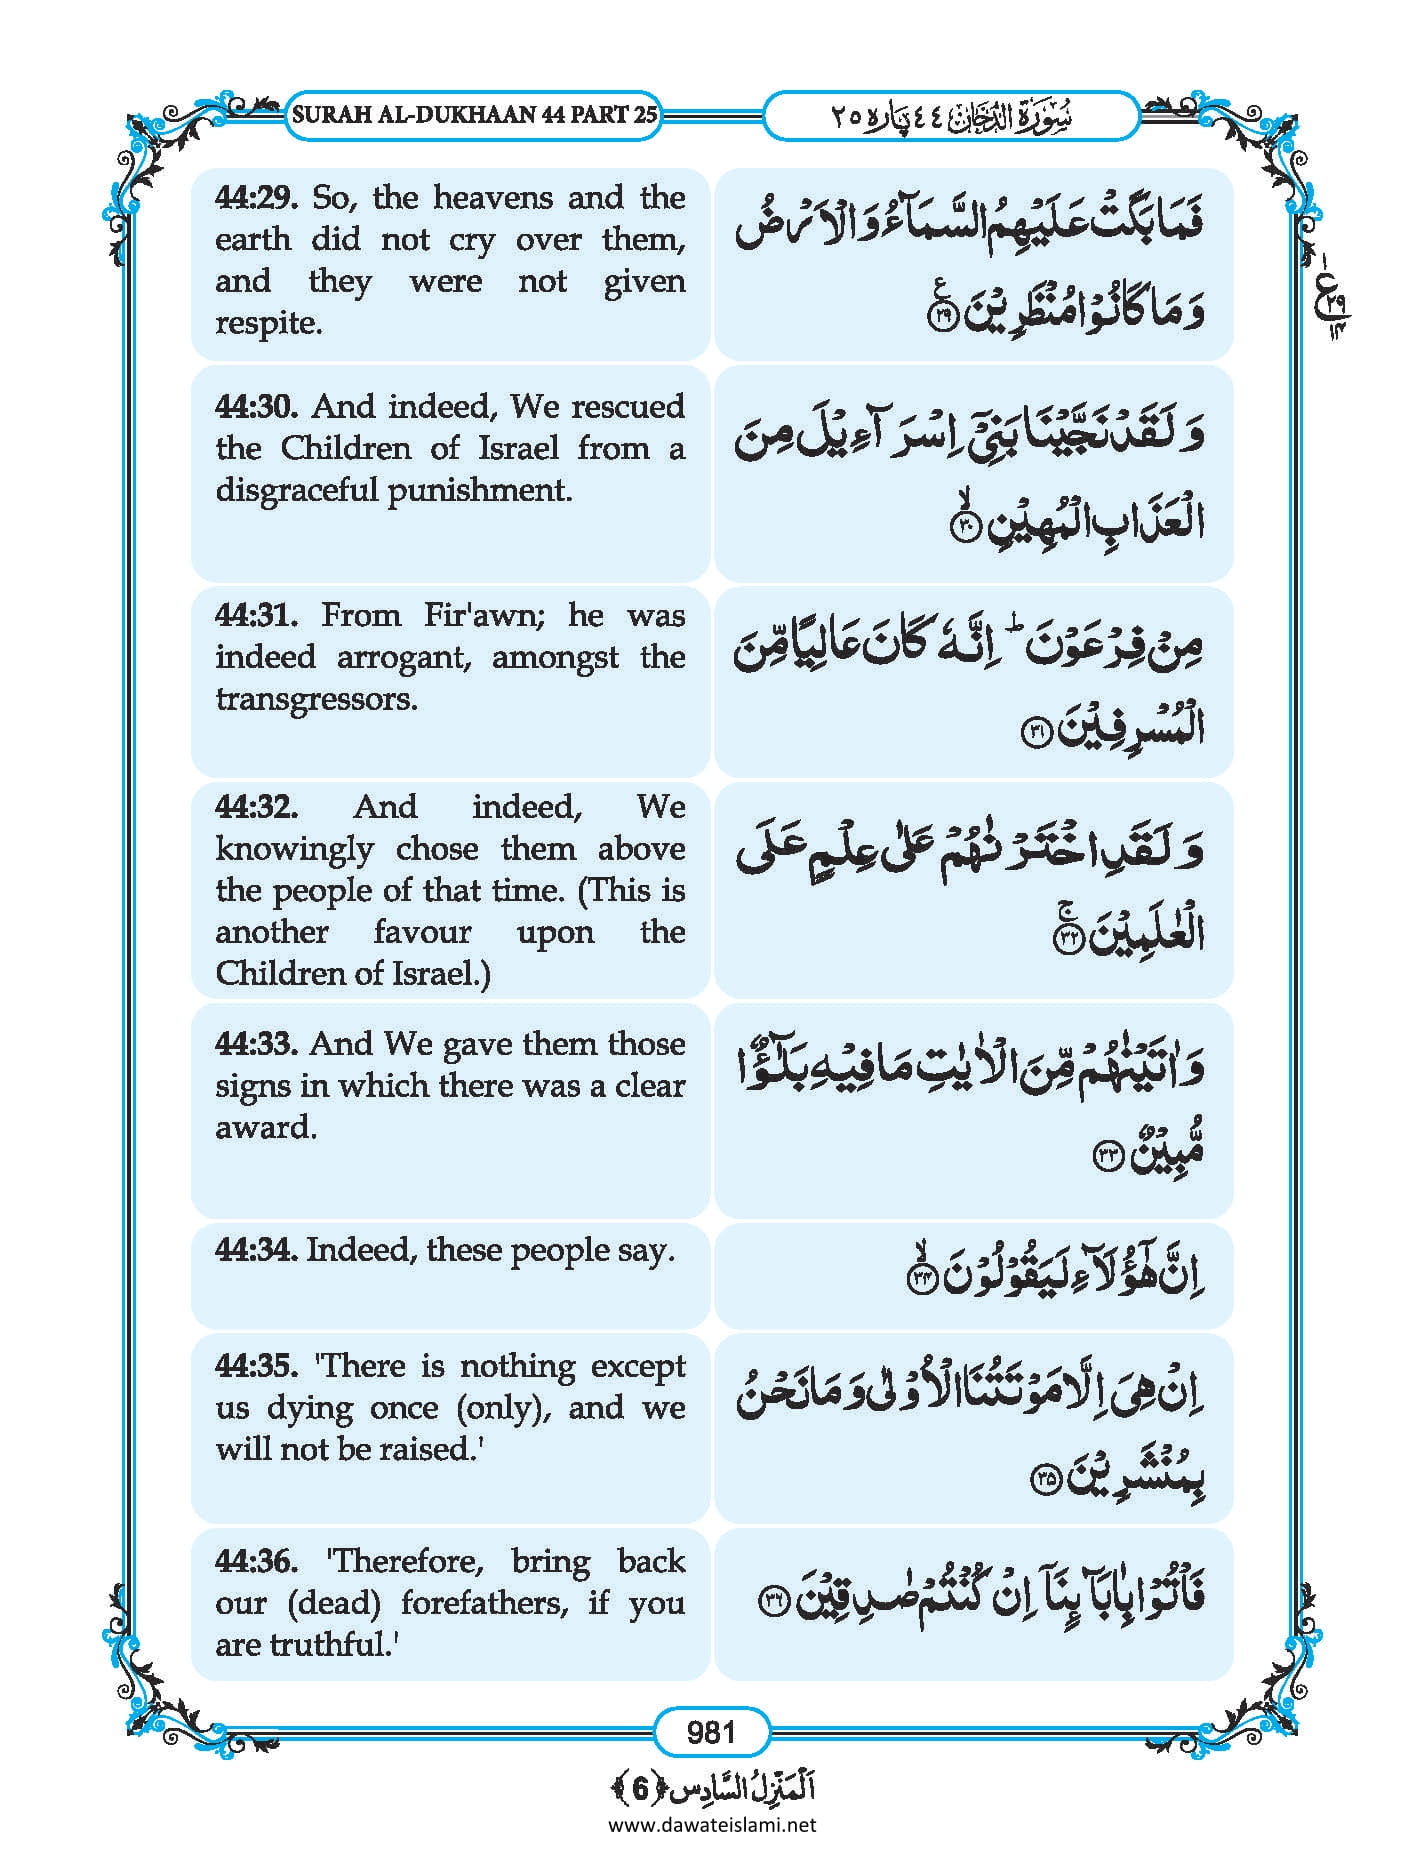 SURAH AL-DUKHAAN 44 PART 25
سُوۡرَۃُ الدُّخَان ٤٤ پارہ ٢٥
44:29. So, the heavens and the
earth did not cry over them,
and they were not given
respite.
فَمَا بَكَتْ عَلَيْهِمُ السَّمَآءُ وَ الْاَرْضُ
وَ مَا كَانُوْا مُنْظَرِيْنَ ۧ﴿۲۹﴾
ع
۲۹
۱۴
44:30. And indeed, We rescued
the Children of Israel from a
disgraceful punishment.
وَ لَقَدْ نَجَّيْنَا بَنِيْۤ اِسْرَآءِيْلَ مِنَ
الْعَذَابِ الْمُهِيْنِ ۙ﴿۳۰﴾
44:31. From Fir'awn; he was
indeed arrogant, amongst the
transgressors.
مِنْ فِرْعَوْنَ ؕ اِنَّهٗ كَانَ عَالِيًا مِّنَ
الْمُسْرِفِيْنَ ﴿۳۱﴾
44:32. And indeed, We
knowingly chose them above
the people of that time. (This is
another favour upon the
Children of Israel.)
وَ لَقَدِ اخْتَرْنٰهُمْ عَلٰى عِلْمٍ عَلَى
الْعٰلَمِيْنَ ۚ﴿۳۲﴾
44:33. And We gave them those
signs in which there was a clear
award.
وَ اٰتَيْنٰهُمْ مِّنَ الْاٰيٰتِ مَا فِيْهِ بَلٰٓؤٌا
مُّبِيْنٌ ﴿۳۳﴾
44:34. Indeed, these people say.
اِنَّ هٰۤؤُلَآءِ لَيَقُوْلُوْنَ ۙ﴿۳۴﴾
44:35. 'There is nothing except
us dying once (only), and we
will not be raised.'
اِنْ هِيَ اِلَّا مَوْتَتُنَا الْاُوْلٰى وَ مَا نَحْنُ
بِمُنْشَرِيْنَ ﴿۳۵﴾
44:36. 'Therefore, bring back
our (dead) forefathers, if you
are truthful.'
فَاْتُوْا بِاٰبَآىِٕنَاۤ اِنْ كُنْتُمْ صٰدِقِيْنَ ﴿۳۶﴾
981
اَلْمَنْزِلُ السَّادِس ﴿6﴾
www.dawateislami.net